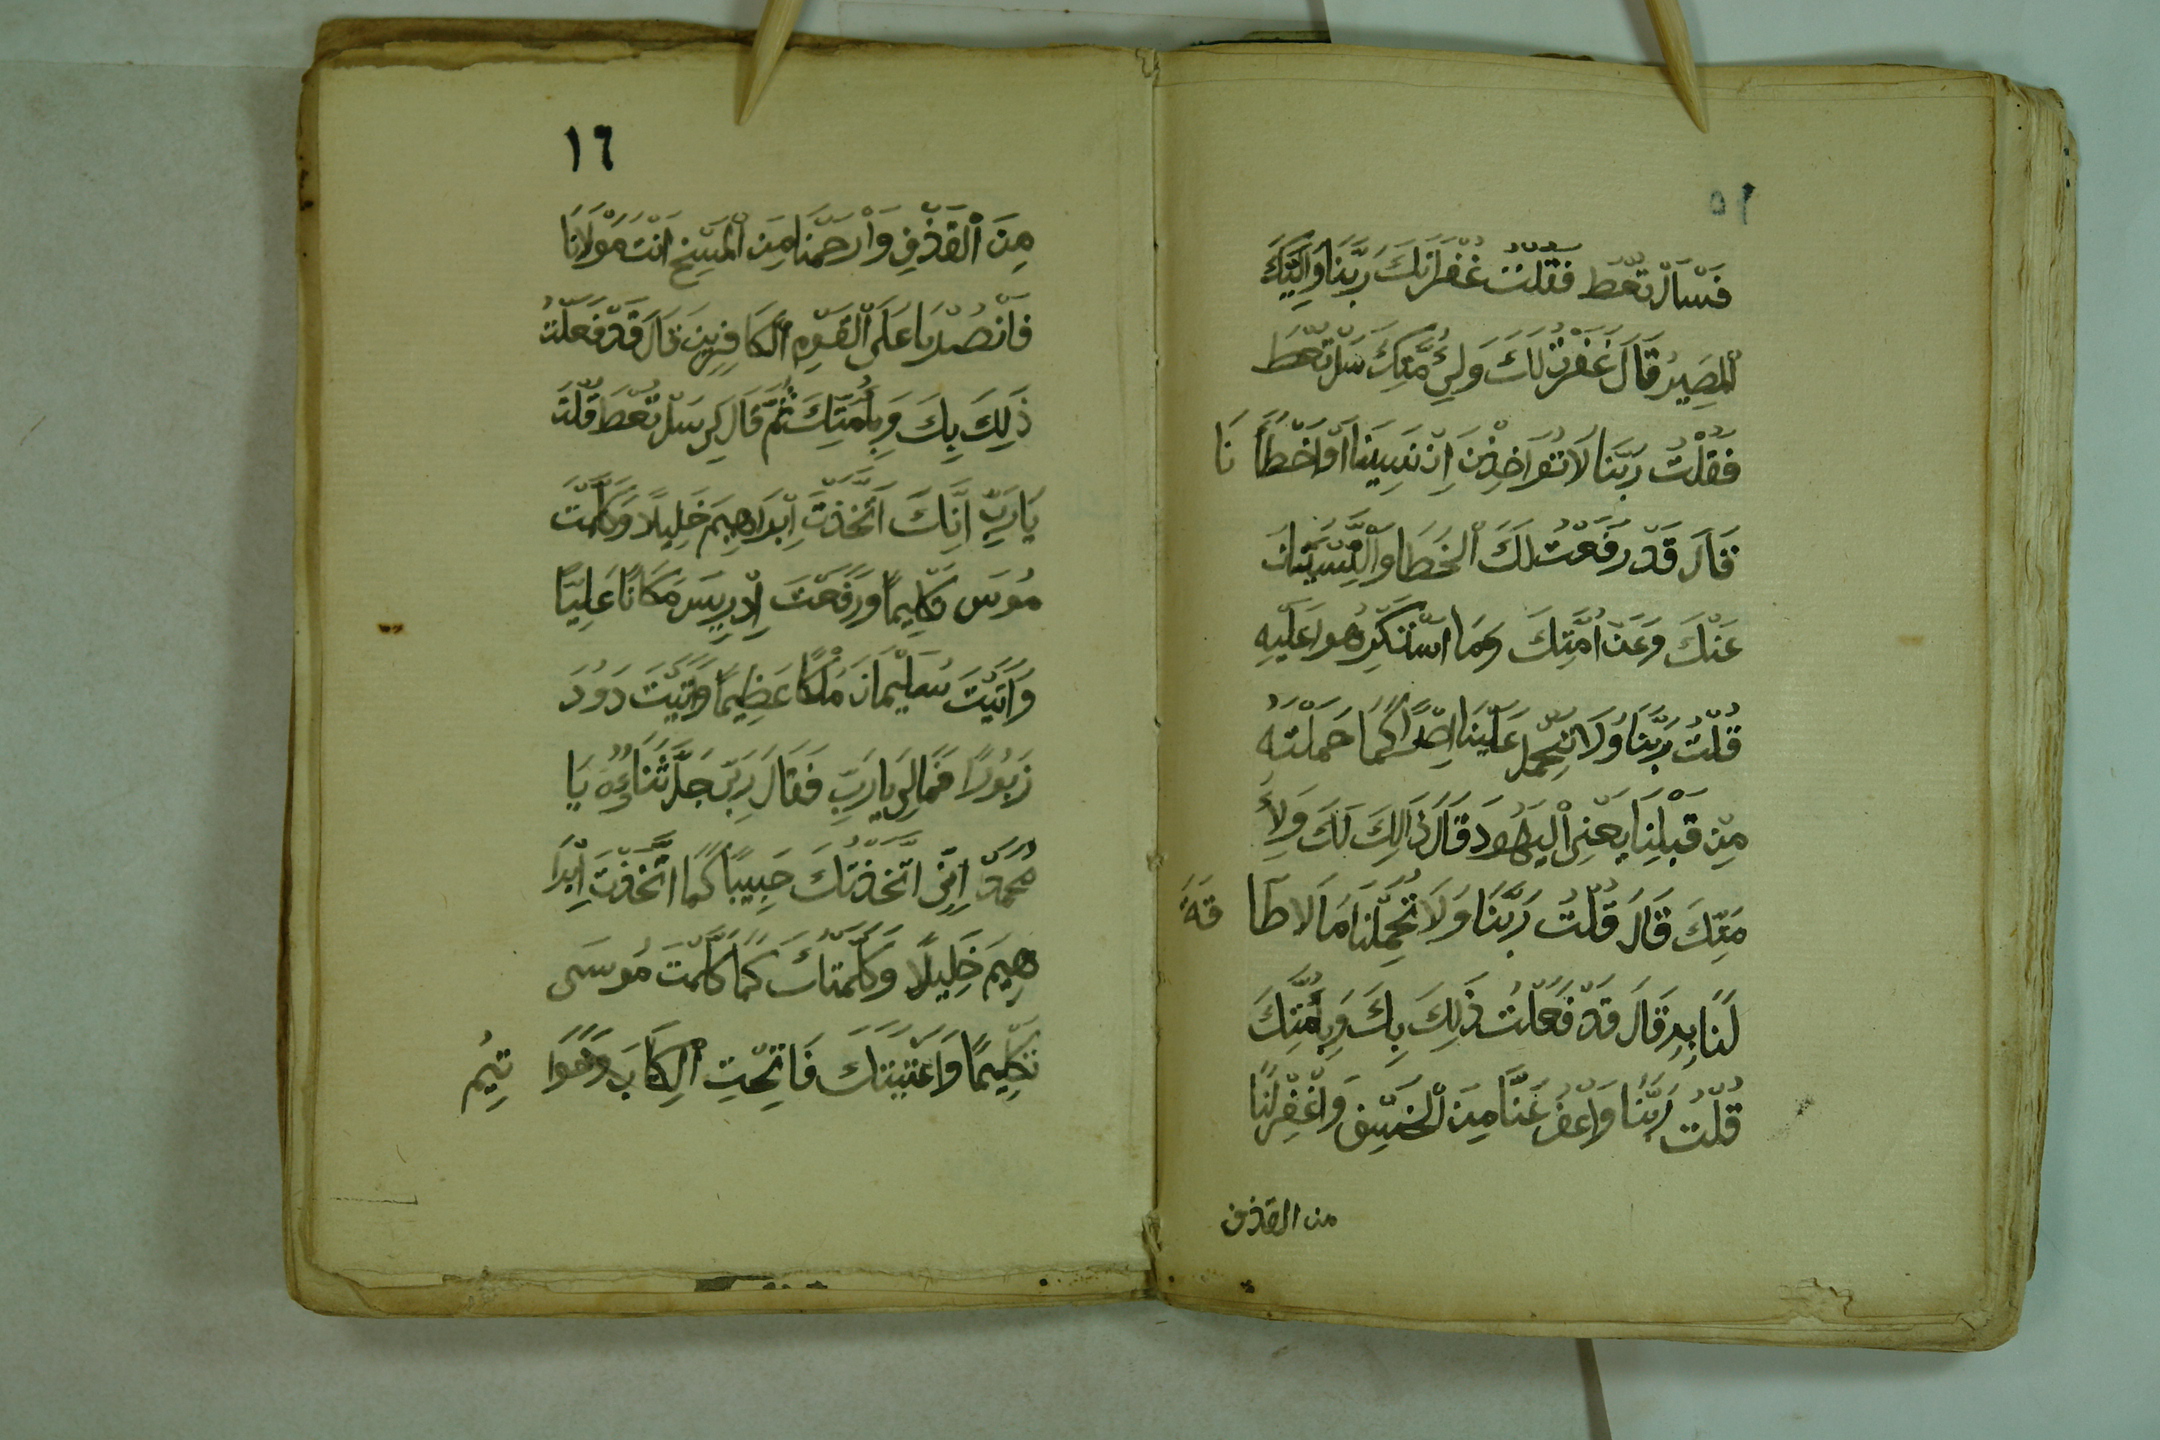 ١٥
فَسْاَلْ تُعْطَ فَقُلْتُ غُفْرَانَكَ رَبَّنَا وَاِلَيْكَ
اْلمَصِيرُ قَالَ غَفَرْتُ لَكَ وَلِاُمَّتِكَ سَلْ تُعْطَ
فَقُلْتُ رَبَّنَا لَا تُوَاخِذْنَ اِنْ نَسِينَا اَوْ اَخْطَأْ نَا
قَالَ قَدْ رَفَعْتُ لَكَ اْلخَطَا وَالنِّسْيَانَ
عَنْكَ وَعَنْ اُمَّتِكَ وَمَا اسْتَكْرِهُوا عَلَيْهِ
قُلْتُ رَبَّنَا وَلَا تَحْمِلْ عَلَيْنَا اِصْرًا كَمَا حَمَلْتَهُ
مِنْ قَبْلِنَا يَعْنِى اْليَهُودَ قَالَ ذَالِكَ لَكَ وَلِأُ
مَتِكَ قَالَ قُلْتُ رَبَّنَا وَلَا تُحَمِّلْنَا مَا لَا طَا قَةَ
لَنَا بِهِ قَالَ قَدْ فَعَلْتُ ذَلِكَ بِكَ وَبِأُمَّتِكَ
قُلْتُ رَبَّنَا وَاعْفُ عَنَّا مِنَ اْلخَسْفِ وَاغْفِرْ لَنَا
من القذف
١٦
مِنَ اْلقَذْفِ وَاْرْحَمْنَا مِنَ اْلمَسْخِ اَنْتَ مَوْلَانَا
فَانْصُرْنَا عَلَى اْلقَوْمِ اْلكَافِرِينَ قَالَ قَدْ فَعَلْتُ
ذَلِكَ بِكَ وَبِأُمَّتِكَ ثُمَّ قَالَ لِى سَلْ تُعْطَ قُلْتُ
يَارَبِّ اِنَّكَ اَتَّخَذْتَ اِبْرَاهِيمَ خَلِيلًا وَكَلَّمْتَ
مُوسَى تَكْلِيمًا وَرَفَعْتَ اِدْرِيسَ مَكَانًا عَلِيًّا
وَاَتَيْتَ سُلَيْمَانَ مُلْكًا عَظِيمًا وَاَتَيْتَ دَوُدَ
زَبُورًا فَمَا لِى يَارَبِّ فَقَالَ رَبِّى جَلَّ ثَنَاؤُهُ يَا
مُحَمَّدُ اِنِّى اتَّخَذْتُكَ حَبِيبًا كَمَا اتَّخَذْتُ اِبْرَا
هِيمَ خَلِيلًا وَكَلَّمْتُكَ كَمَا كَلَّمْتُ مُوسَى
تَكْلِيمًا وَاَعْتَيْتُكَ فَاتِحَتِ اْلكِتَابَ وَخَوَا تِيمُ